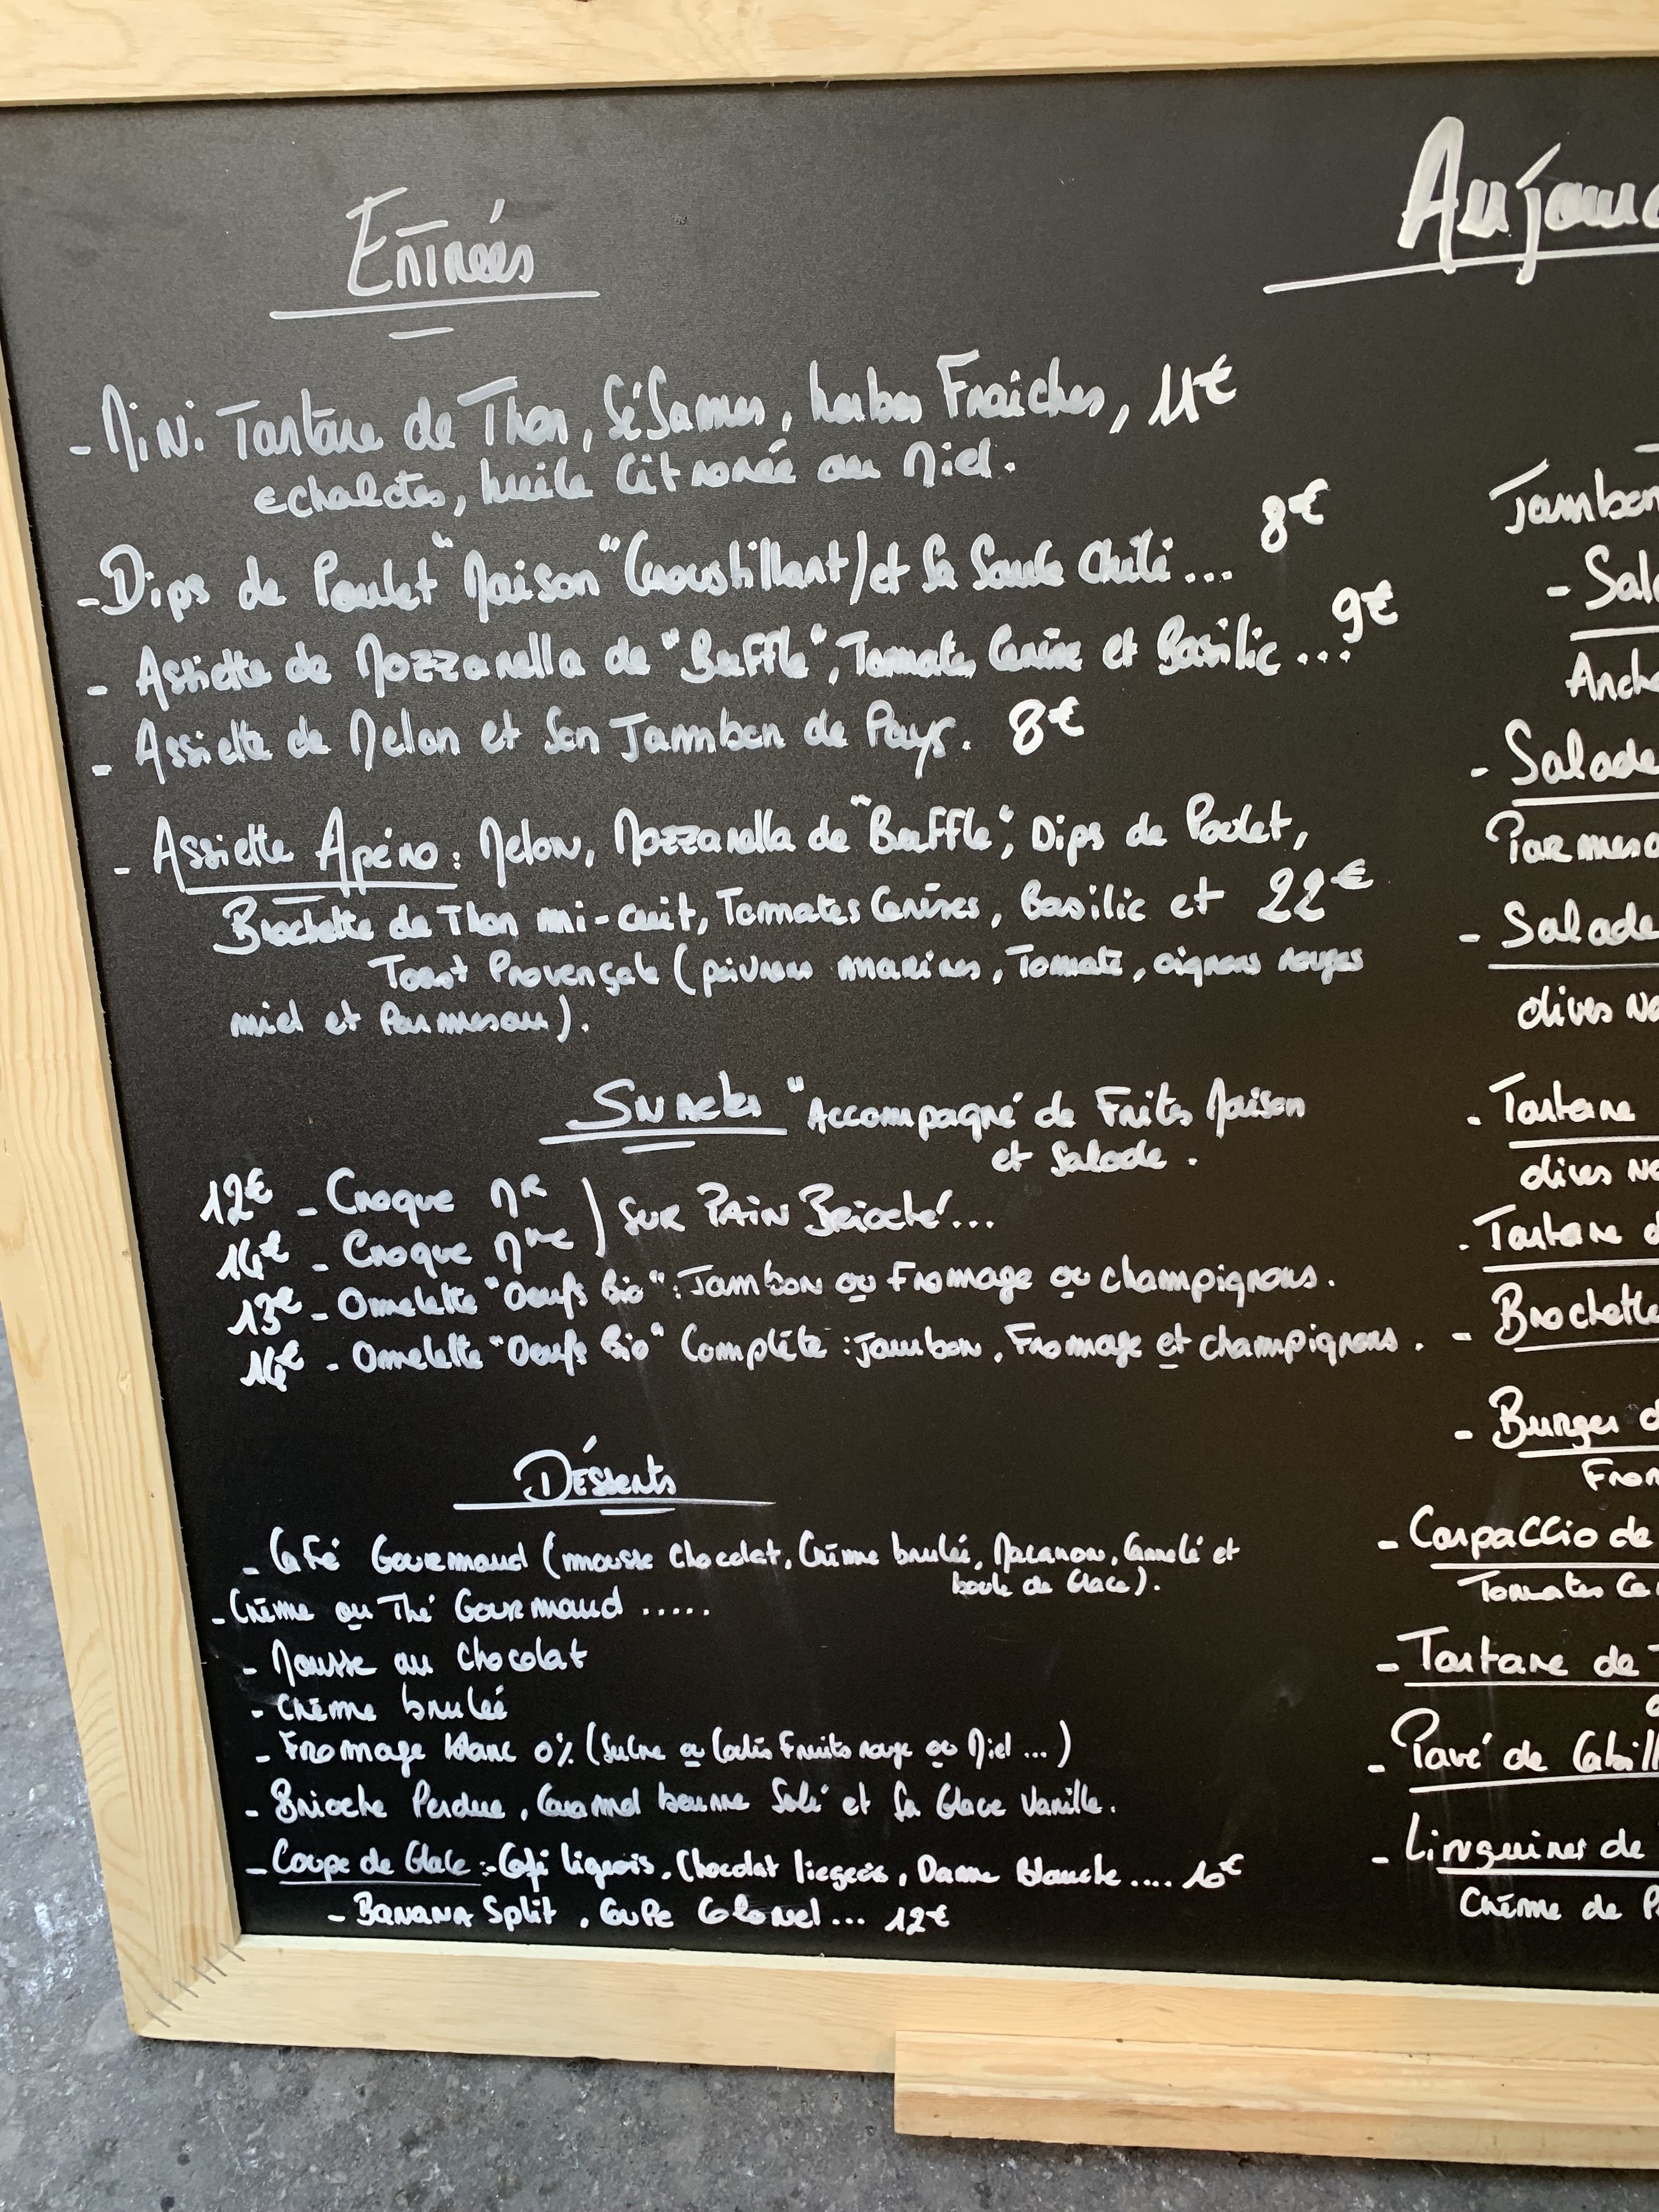 Entrées
- Mini Tartare de Thon, SéSames, herbes Fraiches, 11€
echalotes, huile Citronée au Miel.
- Dips de Poulet "Maison" (croustillant) et Sa Sauce Chili ... 8€
- Assiette de Mozzarella de "Buffle", Tomates Cerise et Basilic ... 9€
- Assiette de Melon et Son Jambon de Pays. 8€
- Assiette Apéro: Melon, Mozzarella de "Buffle", Dips de Poulet,
Brochette de Thon mi-cuit, Tomates Cerises, Basilic et 22€
Toast Provençale (poivrons marines, Tomate, oignons rouges
miel et Parmesan).
Snacks "Accompagné de Frites Maison
et Salade.
12€ - Croque Mr
14€ - Croque Mme ) SUR PAIN Brioché...
13€ - Omelette "Oeufs Bio": Jambon ou Fromage ou champignons.
14€ - Omelette "Oeufs Bio" Complète: jambon, Fromage et champignons.
Désserts
- Café Gourmand (mousse chocolat, Crème brulée, Macaron, Canelé et
boule de Glace).
- Crème ou Thé Gourmand .....
- Mousse au chocolat
- Crème brulée
- Fromage blanc 0% (Sucre ou Coulis Fruits rouge ou Miel ...)
- Brioche Perdue, Caramel beurre Salé et Sa Glace Vanille.
- Coupe de Glace :- Café liégeois, Chocolat liegeois, Dame Blanche .... 10€
- BANANA Split, Coupe Colonel ... 12€
Jambon
- Salade
Parmesa
- Salade
olives No
- Tartare
olives No
- Tartare d
- Brochette
- Burger d
From
- Carpaccio de
Tomates Ce
- Tartare de T
- Pavé de Cabill
- Linguines de
Crème de P